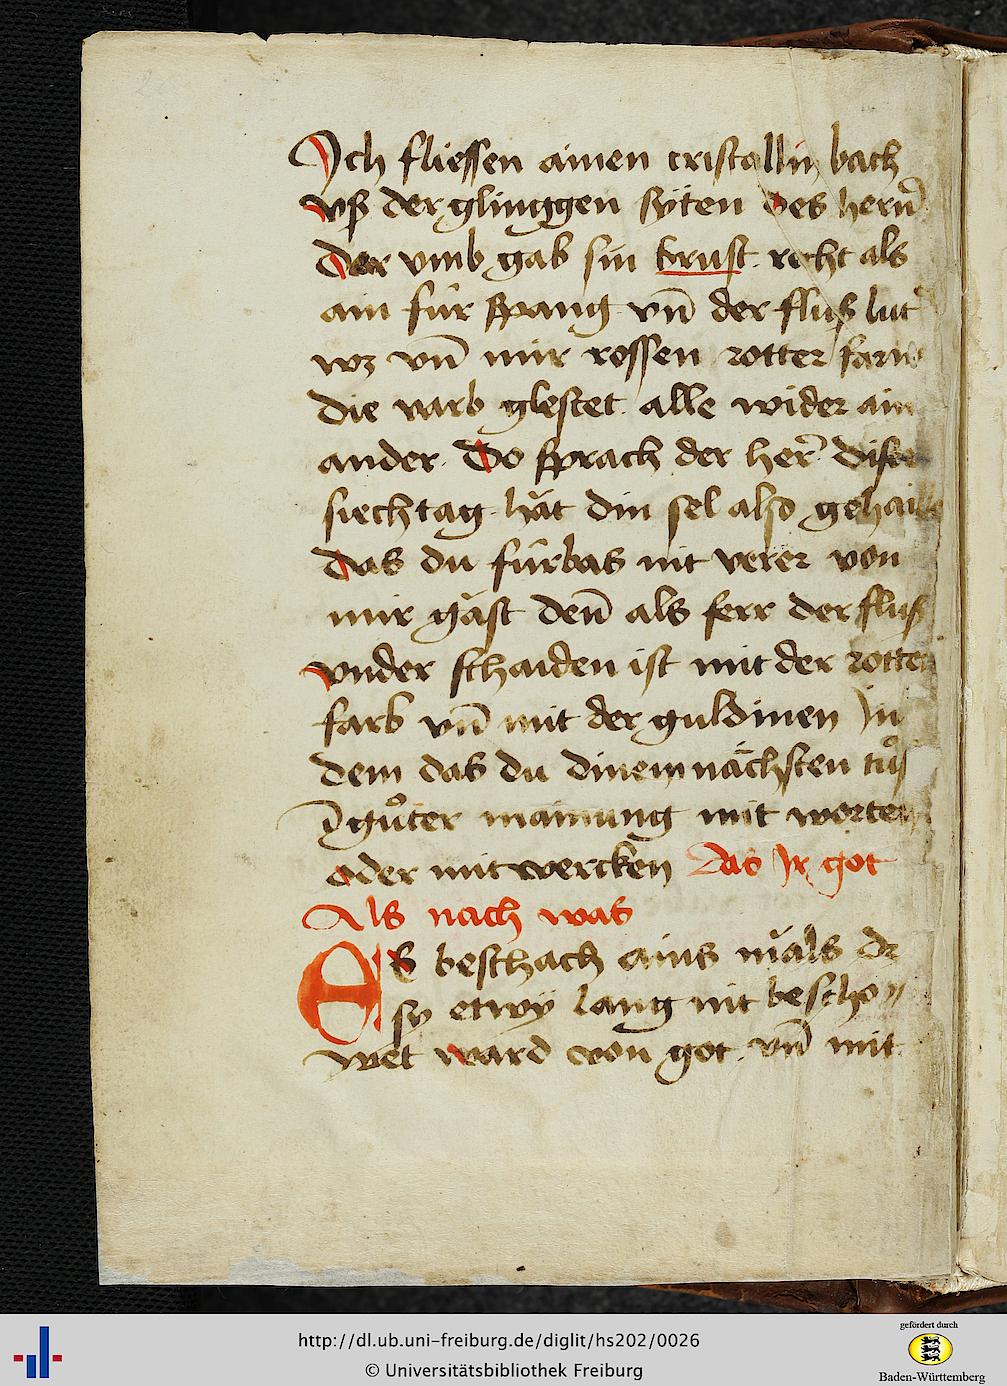 Jch fliessen ainen cristallin bach
vß der glinggen syten des hern̄
der vmb gab sin brust recht als
ain für spang vn̄ der fluß lut
wz vn̄ mir rossen rotter farw
die varb glestet alle wider ain
ander. Do sprach der her̄
siechtag hăt din sel also
das du fürbas nit verer von
mir găst den̄ als ferr der fluß
vnder schaiden ist mit der rotten
farb vn̄ mit der guldinen Jn
dem das du dinem năchsten
gůter mainung mit worten
oder mit wercken Das Jr got
Als nach was
ES beschach ains măls dz
sy etwÿ lang nit bescho〃
wet ward von got vn̄ mit
http://dl.ub.uni-freiburg.de/diglit/hs202/0026
© Universitätsbibliothek Freiburg
gefördert durch
Baden-Württemberg